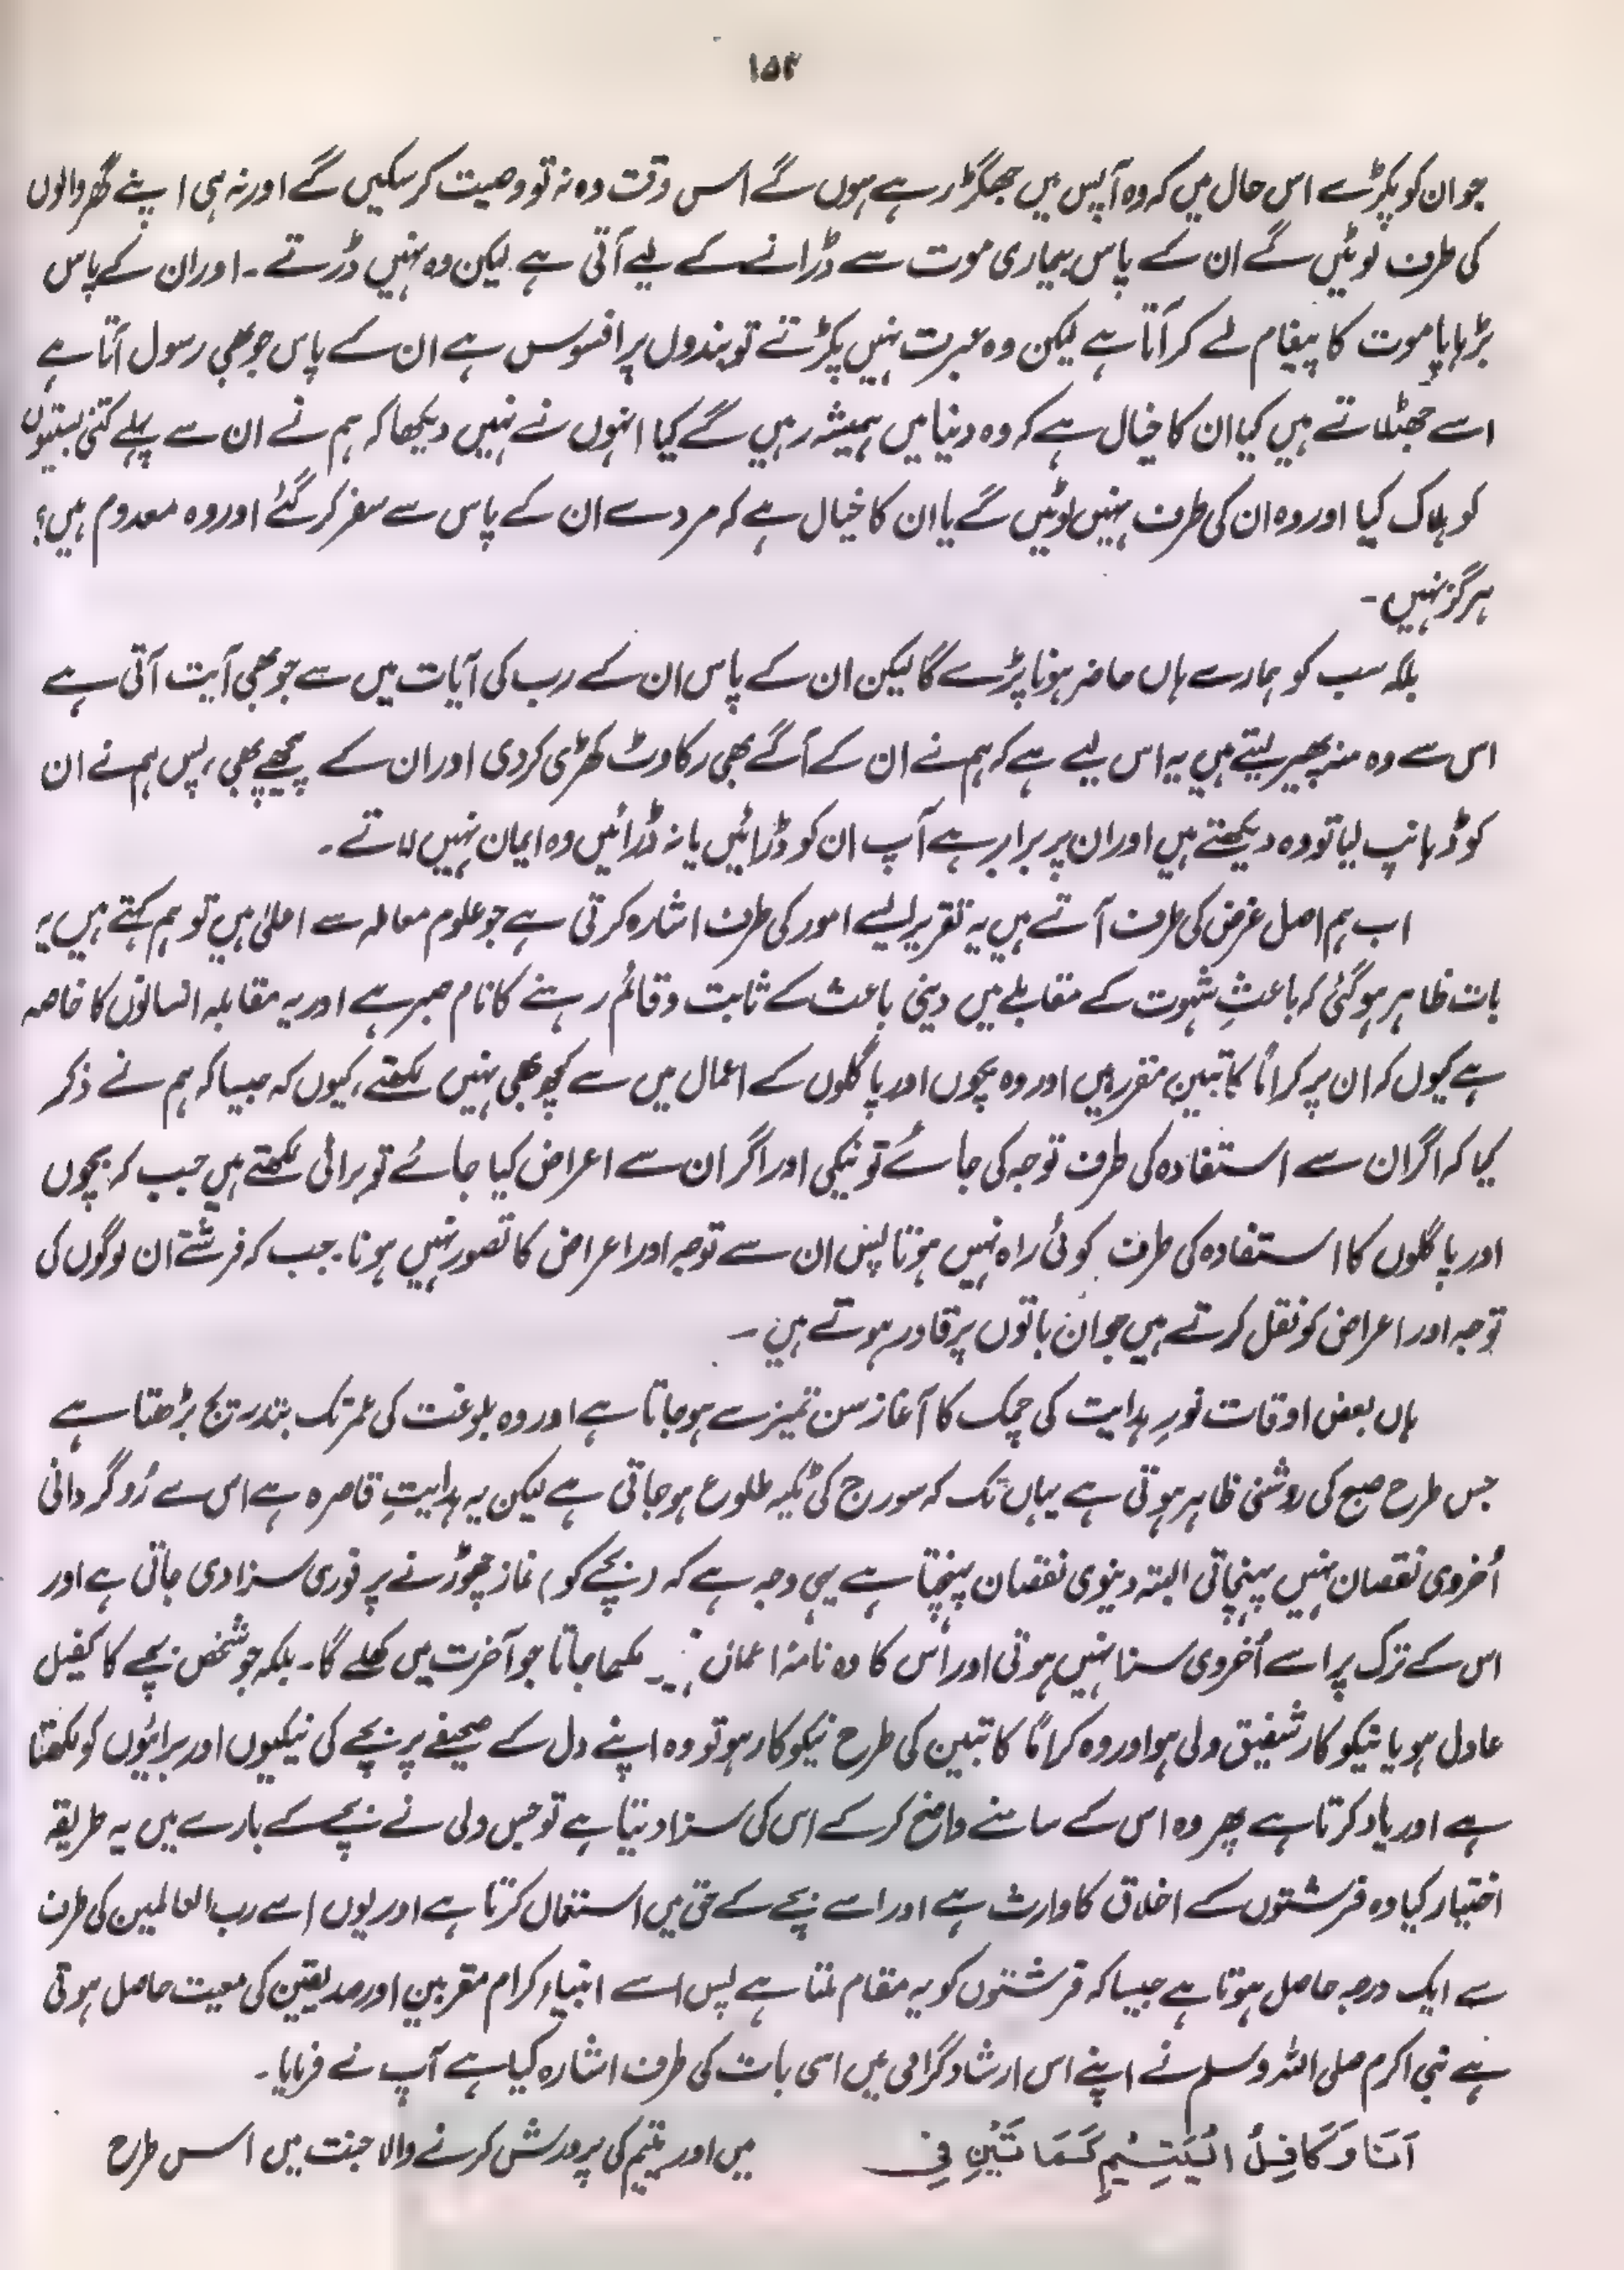 ۱۵۴
جو ان کو پکڑے اس حال میں کہ وہ آپس میں جھگڑ رہے ہوں گے اس وقت وہ نہ تو وصیت کر سکیں گے اور نہ ہی اپنے گھر والوں
کی طرف لوٹیں گے ان کے پاس بیماری موت سے ڈرانے کے لیے آتی ہے لیکن وہ نہیں ڈرتے ۔ اور ان کے پاس
بڑہاپا موت کا پیغام لے کر آتا ہے لیکن وہ عبرت نہیں پکڑتے تو بندوں پر افسوس ہے ان کے پاس جو بھی رسول آتا ہے
اسے جھٹلاتے ہیں کیا ان کا خیال ہے کہ وہ دینا میں ہمیشہ رہیں گے کیا انہوں نے نہیں دیکھا کہ ہم نے ان سے پہلے کتنی بستیوں
کو ہلاک کیا اور وہ ان کی طرف نہیں لوٹیں گے یا ان کا خیال ہے کہ مردے ان کے پاس سے سفر کر گئے اور وہ معدوم ہیں؟
ہرگز نہیں ۔
بلکہ سب کو ہمارے ہاں حاضر ہونا پڑے گا لیکن ان کے پاس ان کے رب کی آیات میں سے جو بھی آیت آتی ہے
اس سے وہ منہ پھیر لیتے ہیں یہ اس لیے ہے کہ ہم نے ان کے آگے بھی رکاوٹ کھڑی کردی اور ان کے پیچھے بھی ، پس ہم نے ان
کو ڈہانپ لیا تو وہ دیکھتے ہیں اور ان پر برابر ہے آپ ان کو ڈرائیں یا نہ ڈرائیں وہ ایمان نہیں لاتے ۔
اب ہم اصل غرض کی طرف آتے ہیں یہ تقریر ایسے امور کی طرف اشارہ کرتی ہے جو علوم معاملہ سے اعلیٰ ہیں تو ہم کہتے ہیں یہ
بات ظاہر ہو گئی کہ باعثِ شہوت کے مقابلے میں دینی باعث کے ثابت و قائم رہنے کا نام صبر ہے اور یہ مقابلہ انسانوں کا خاصہ
ہے کیوں کہ ان پر کراماً کاتبین مقرر ہیں اور وہ بچوں اور پاگلوں کے اعمال میں سے کچھ بھی نہیں لکھتے ، کیوں کہ جیسا کہ ہم نے ذکر
کیا کہ اگر ان سے استفادہ کی طرف توجہ کی جائے تو نیکی اور اگر ان سے اعراض کیا جائے تو برائی لکھتے ہیں جب کہ بچوں
اور پاگلوں کا استفادہ کی طرف کوئی راہ نہیں ہوتا پس ان سے توجہ اور اعراض کا تصور نہیں ہوتا ۔ جب کہ فرشتے ان لوگوں کی
توجہ اور اعراض کو نقل کرتے ہیں جو ان باتوں پر قادر ہوتے ہیں ۔
ہاں بعض اوقات نورِ ہدایت کی چمک کا آغاز سن تمیز سے ہو جاتا ہے اور وہ بلوغت کی عمر تک بتدریج بڑھتا ہے
جس طرح صبح کی روشنی ظاہر ہوتی ہے یہاں تک کہ سورج کی ٹکیہ طلوع ہو جاتی ہے لیکن یہ ہدایتِ قاصرہ ہے اس سے رُوگردانی
اُخروی نقصان نہیں پہنچاتی البتہ دینوی نقصان پہنچتا ہے یہی وجہ ہے کہ (بچے کو) نماز چھوڑنے پر فوری سزا دی جاتی ہے اور
اس کے ترک پر اسے اُخروی سزا نہیں ہوتی اور اس کا وہ نامۂ اعمال لکھا جاتا جو آخرت میں کھلے گا ۔ بلکہ جو شخص بچے کا کفیل
عادل ہو یا نیکو کار شفیق ولی ہو اور وہ کراماً کاتبین کی طرح نیکو کار ہو تو وہ اپنے دل کے صحیفے پر بچے کی نیکیوں اور برائیوں کو لکھتا
ہے اور یاد کرتا ہے پھر وہ اس کے سامنے واضح کر کے اس کی سزا دیتا ہے تو جس ولی نے بچے کے بارے میں یہ طریقہ
اختیار کیا وہ فرشتوں کے اخلاق کا وارث ہے اور اسے بچے کے حق میں استعمال کرتا ہے اور یوں اسے رب العالمین کی طرف
سے ایک درجہ حاصل ہوتا ہے جیسا کہ فرشتوں کو یہ مقام ملتا ہے پس اسے انبیاء کرام مقربین اور صدیقین کی معیت حاصل ہوتی
ہے نبی اکرم صلی اللہ وسلم نے اپنے اس ارشاد گرامی میں اسی بات کی طرف اشارہ کیا ہے آپ نے فرمایا ۔
اَنَا وَکَافِلُ الْیَتِیْمِ کَھَاتَیْنِ فِی میں اور یتیم کی پرورش کرنے والا جنت میں اس طرح